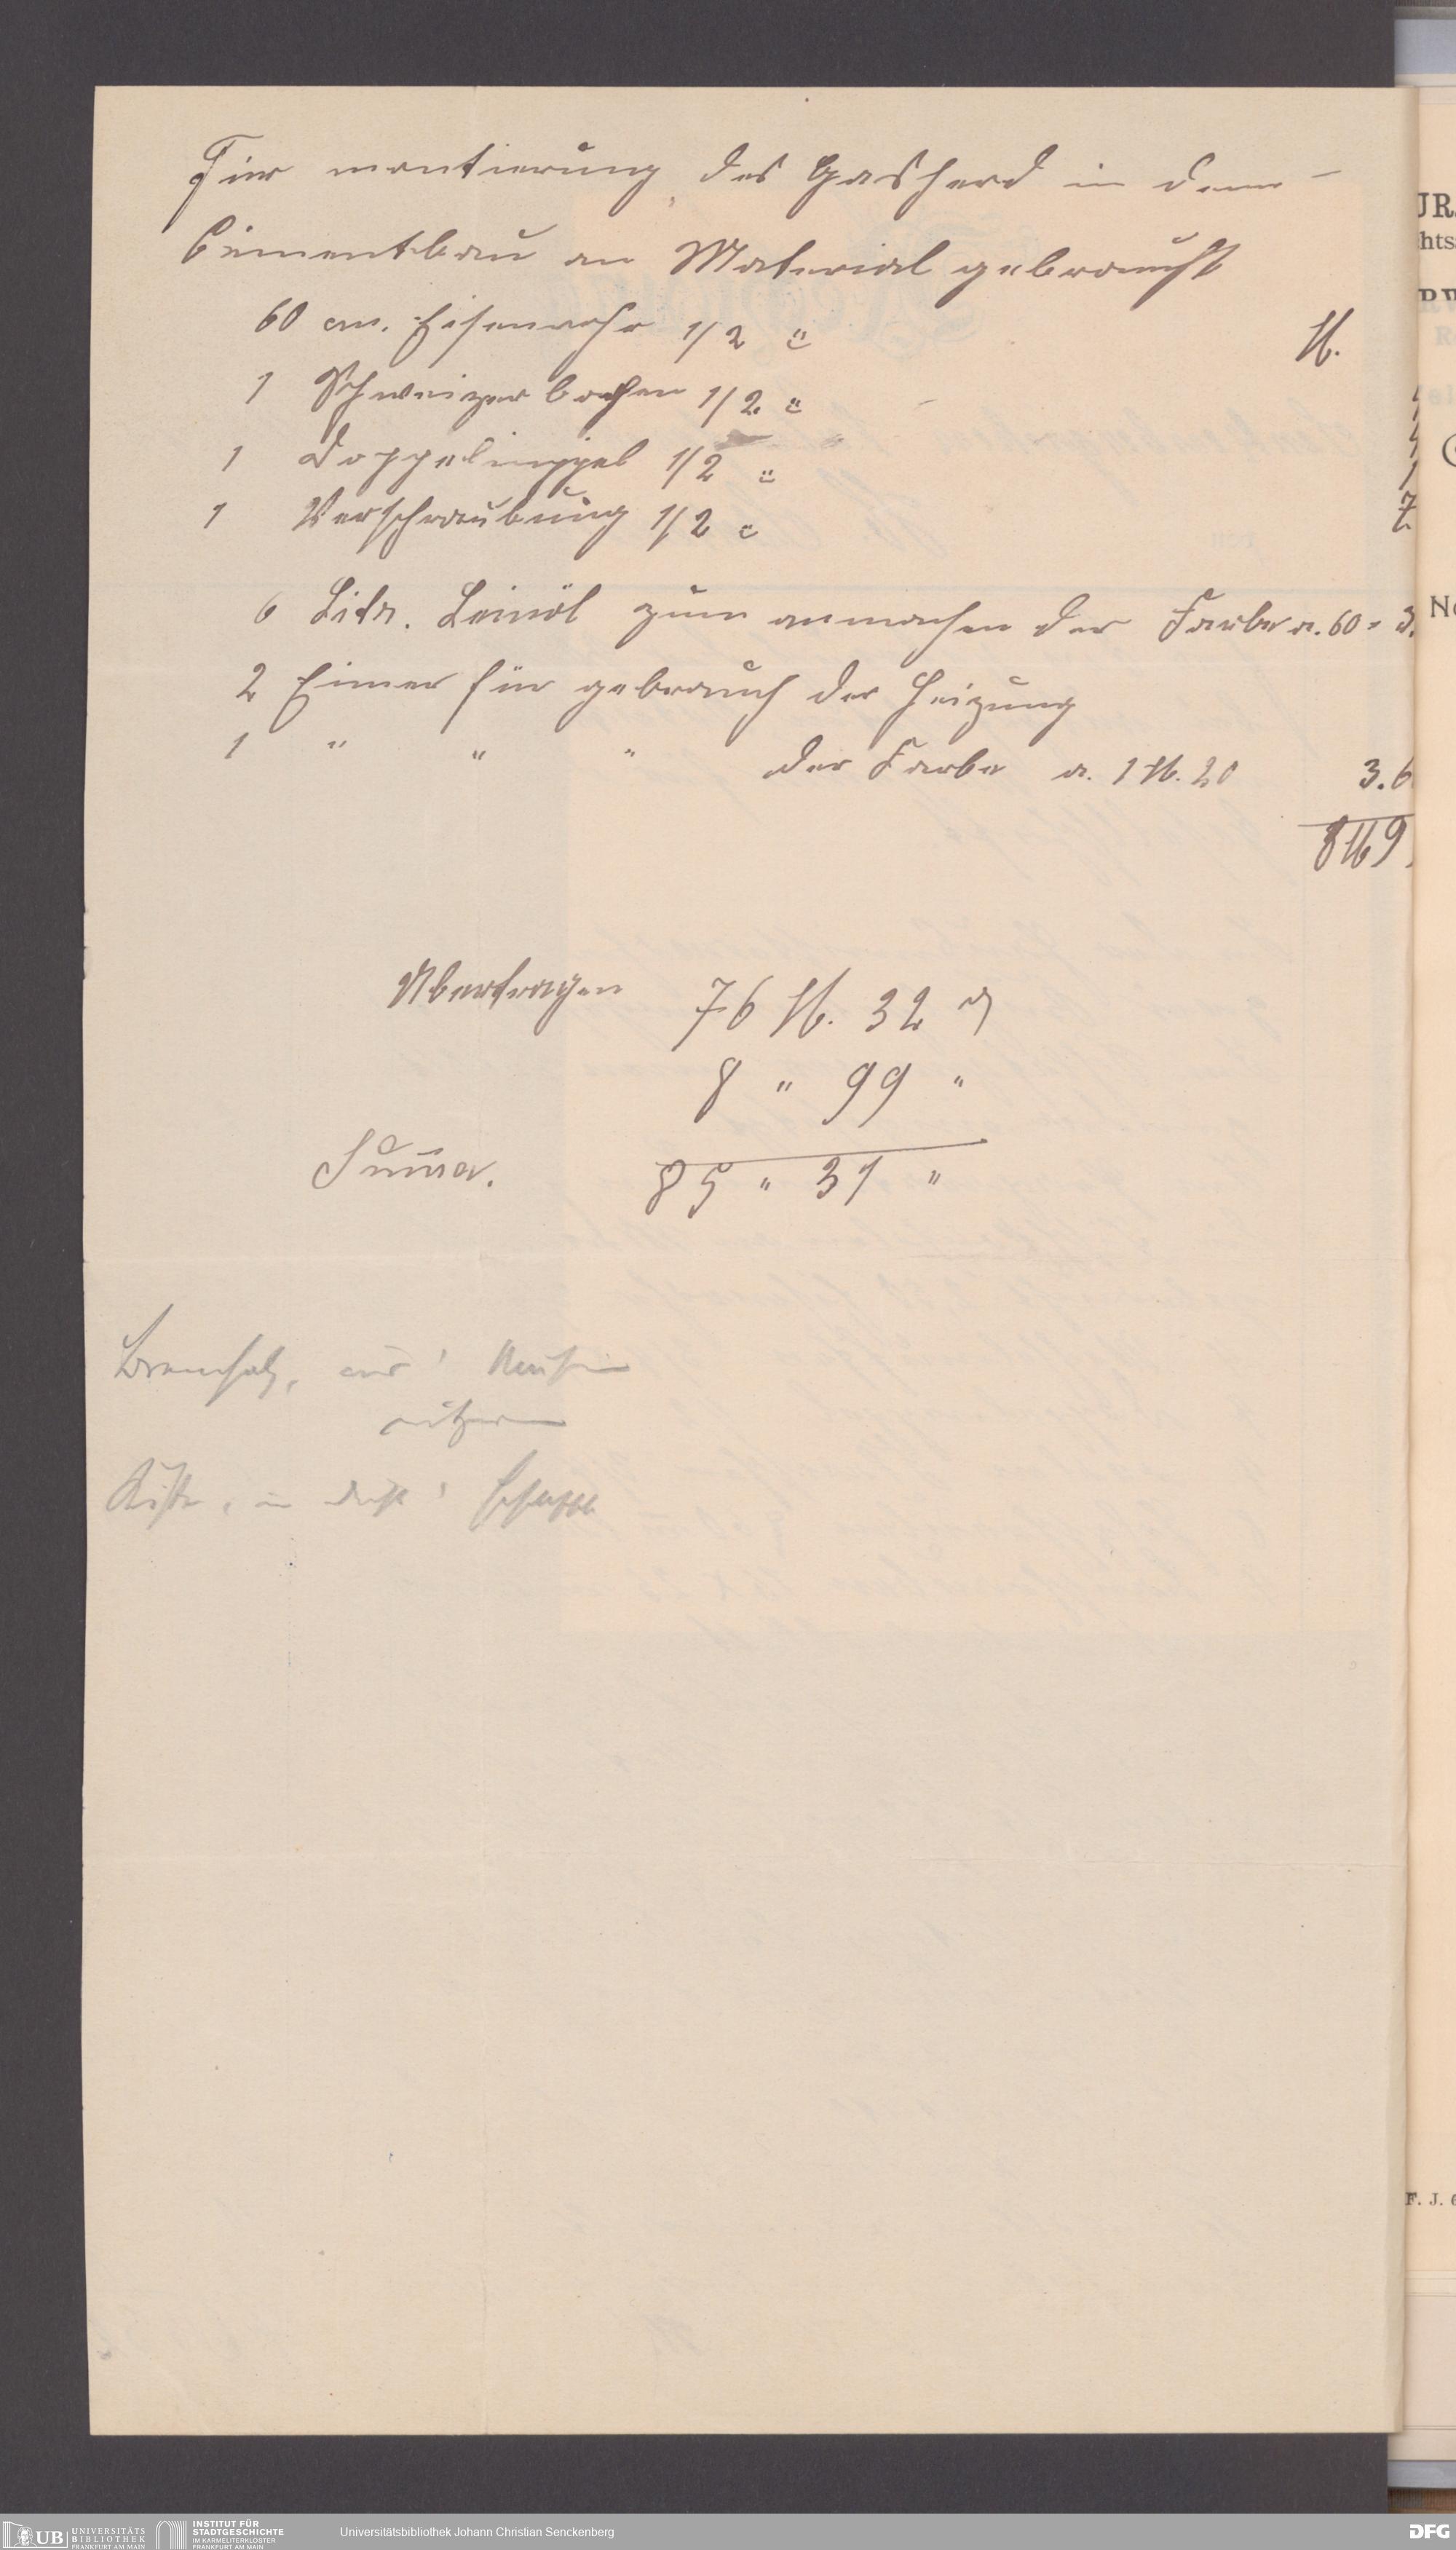 Für montierung des Gasherd in dem
Cementbau an Material gebraucht
60 cm. Eisenrohr 1/2 " M.
1 Schweizerbogen 1/2 "
1 Doppelnippel 1/2 "
1 Verschraubung 1/2 " 7
6 Litr. Leinöl zum anmachen der Farbe a. 60 = 3.
2 Eimer für gebrauch der Heizung
1 " " " der Farbe a. 1 M. 20 3.6
8 M 9
Übertragen 76 M. 32 ₰
8 " 99 "
Suma. 85 " 31 "
Brennholz,
Kiste, in
JR
hts
No
F. J. G
UB UNIVERSITÄTS
BIBLIOTHEK
FRANKFURT AM MAIN
INSTITUT FÜR
STADTGESCHICHTE
IM KARMELITERKLOSTER
FRANKFURT AM MAIN
Universitätsbibliothek Johann Christian Senckenberg
DFG